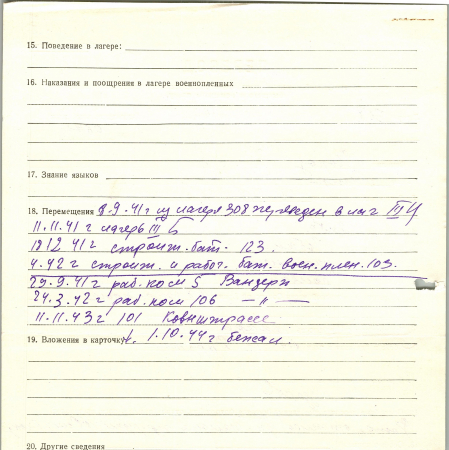 15. Поведение в лагере:
16. Наказания и поощрения в лагере военнопленных
17. Знание языков
18. Перемещения 8.9.41 г из лагеря 308 переведен в лаг III
11.11.41 г лагерь III
18 12 41 г строит. бат. 123.
4.42 г строит. и работ. бат. воен. плен. 103.
29.9.41 г раб. ком 5
24.3.42 г раб. ком 106 — " —
11.11.43 г 101
19. Вложения в карточку 1.10.44 г бежал.
20. Другие сведения